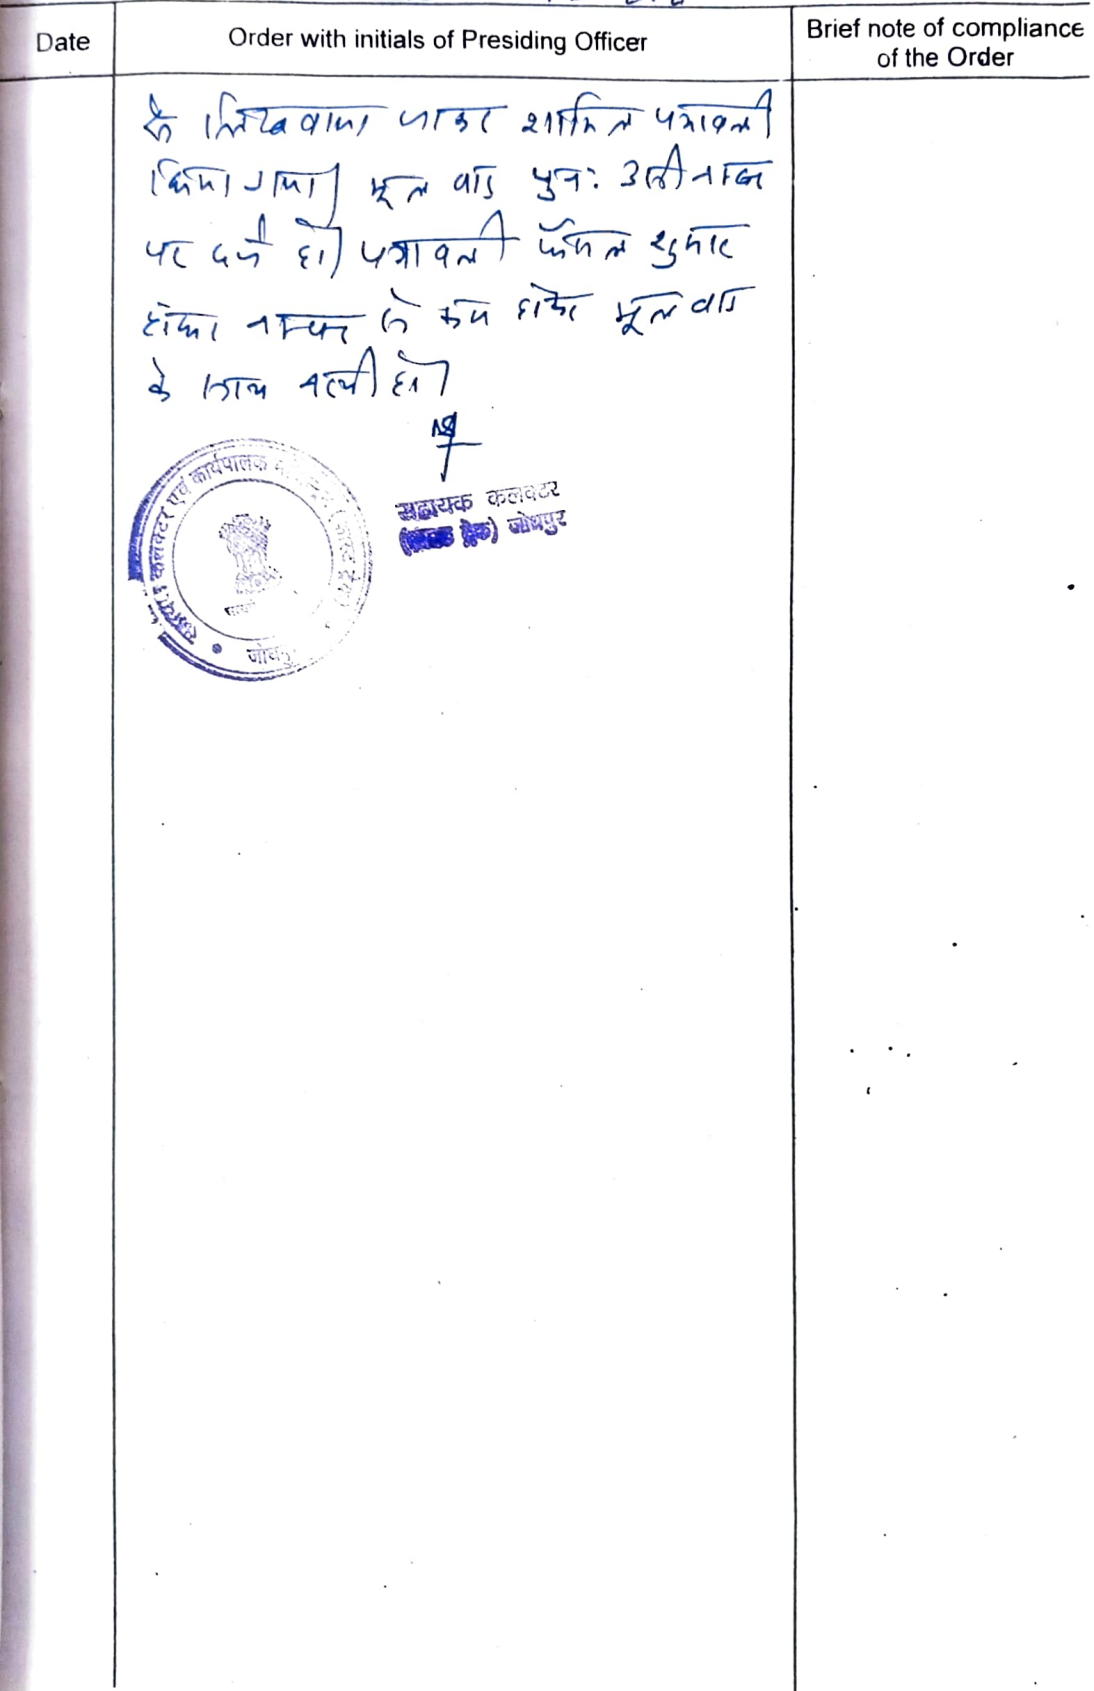 Date
Order with initials of Presiding Officer
Brief note of compliance
of the Order
के लिखवाया जाकर शामिल पत्रावली
किया गया। मूल वाद पुनः उसी नम्बर
पर दर्ज हो। पत्रावली फैसल शुमार
होकर नम्बर से कम होकर मूल वाद
के साथ नत्थी हो।
सहायक कलक्टर
(फास्ट ट्रैक) जोधपुर
सहायक कलक्टर एवं कार्यपालक
जोधपुर